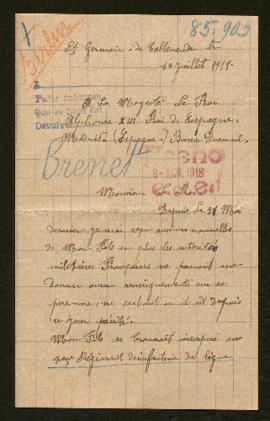 85.902
St Germain de Tallevende le
10 Juillet 1918.
A Sa Majesté Le Roi
Alphonse XIII Roi de Espagne
Madrid (Espagne)
Brenet
8-AGO.1918
Monsieur Le Roi
Depuis Le 31 Mai
dernier je n'ai reçu aucune nouvelle
de Mon Fils en plus les autorités
militaires Françaises ne peuvent me
donner aucun renseignements sur sa
personne, ne sachant où il est depuis
ce jour précité.
Mon Fils se trouvait incorporé au
Régiment d'infanterie de ligne